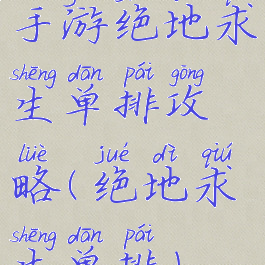 手游绝地求
shēng dān pái gōng
生单排攻
lüè jué dì qiú
略(绝地求
shēng dān pái
生单排)